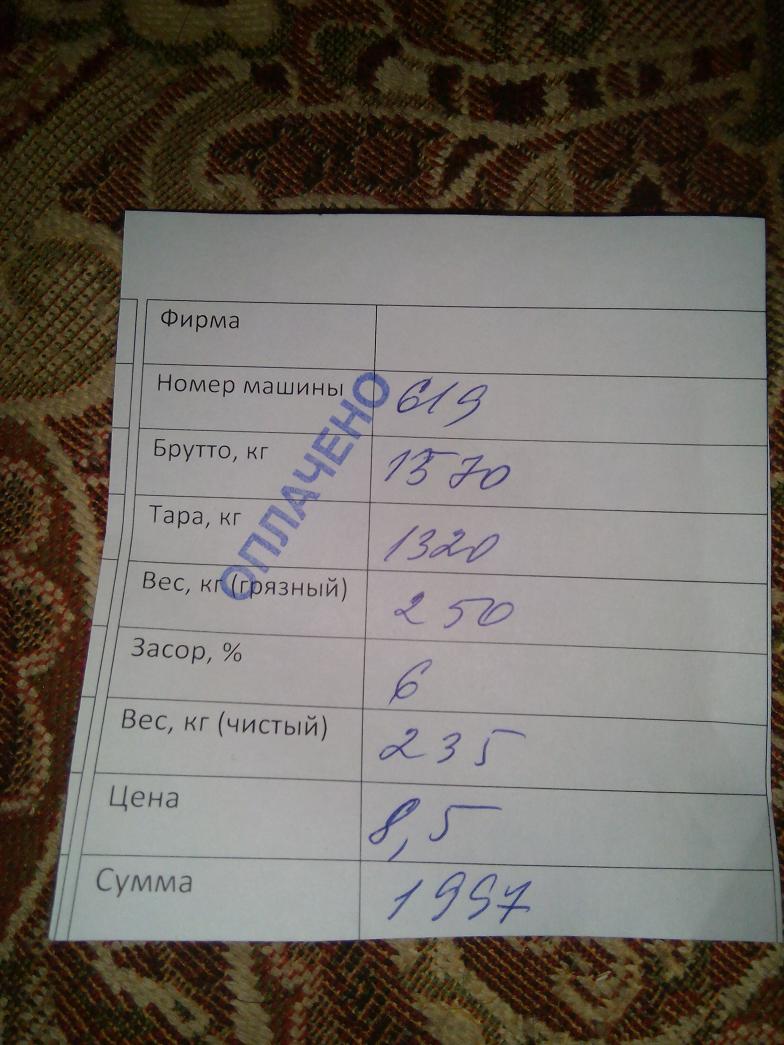 Фирма
Номер машины 619
Брутто, кг 1570
Тара, кг 1320
Вес, кг (грязный) 250
Засор, % 6
Вес, кг (чистый) 235
Цена 8,5
Сумма 1997
ОПЛАЧЕНО